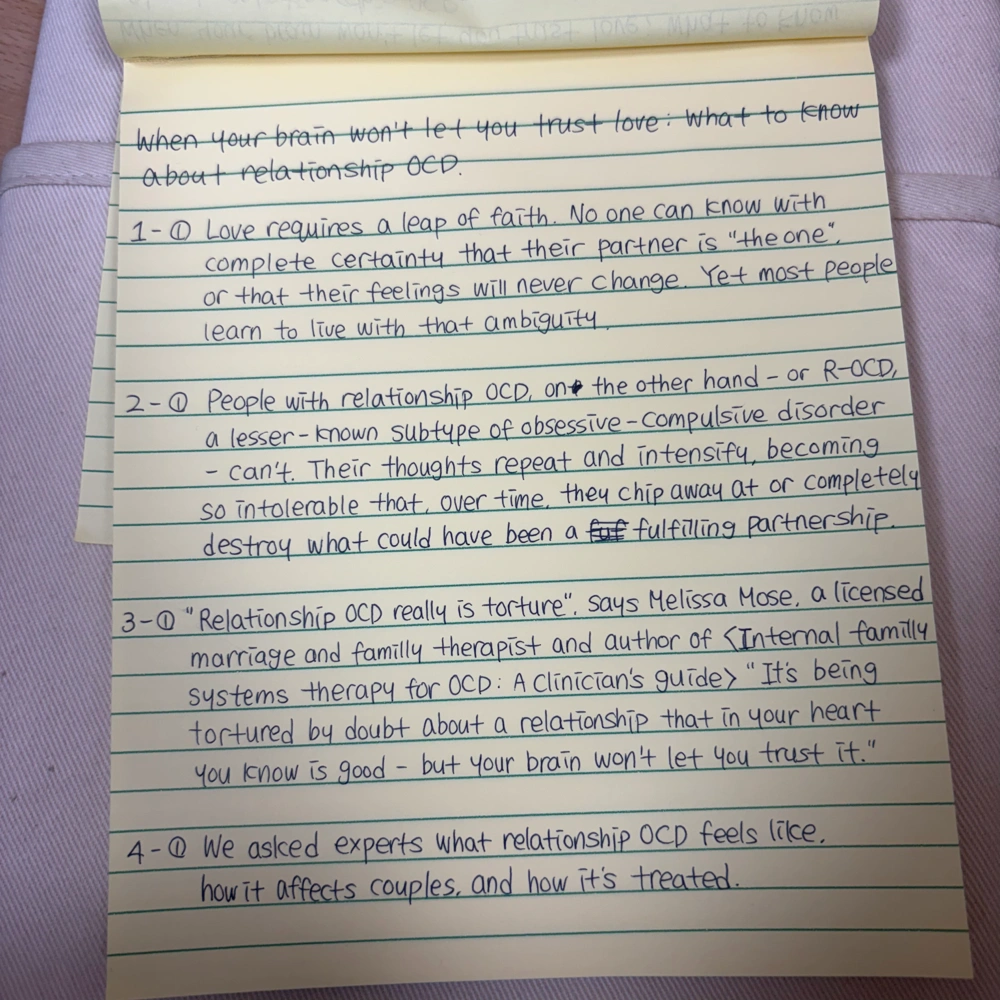 When your brain won't let you trust love: What to know
about relationship OCD.
1-① Love requires a leap of faith. No one can know with
complete certainty that their partner is "the one",
or that their feelings will never change. Yet most people
learn to live with that ambiguity.
2-① People with relationship OCD, on the other hand - or R-OCD,
a lesser-known subtype of obsessive-compulsive disorder
- can't. Their thoughts repeat and intensify, becoming
so intolerable that, over time, they chip away at or completely
destroy what could have been a fulfilling partnership.
3-① "Relationship OCD really is torture", says Melissa Mose, a licensed
marriage and familly therapist and author of <Internal familly
systems therapy for OCD: A Clinician's guide> "It's being
tortured by doubt about a relationship that in your heart
you know is good - but your brain won't let you trust it."
4-① We asked experts what relationship OCD feels like,
how it affects couples, and how it's treated.